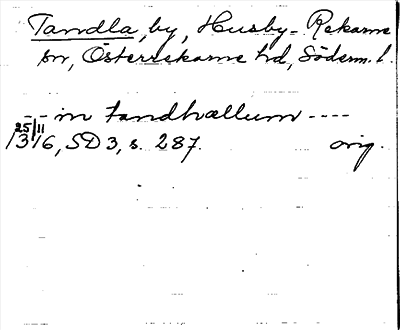 Tandla, by, Husby-Rekarne
sn, Österrekarne hd, Söderm. l.
- - in tandhallum - - - -
25/11
1316, SD 3, s. 287. orig.